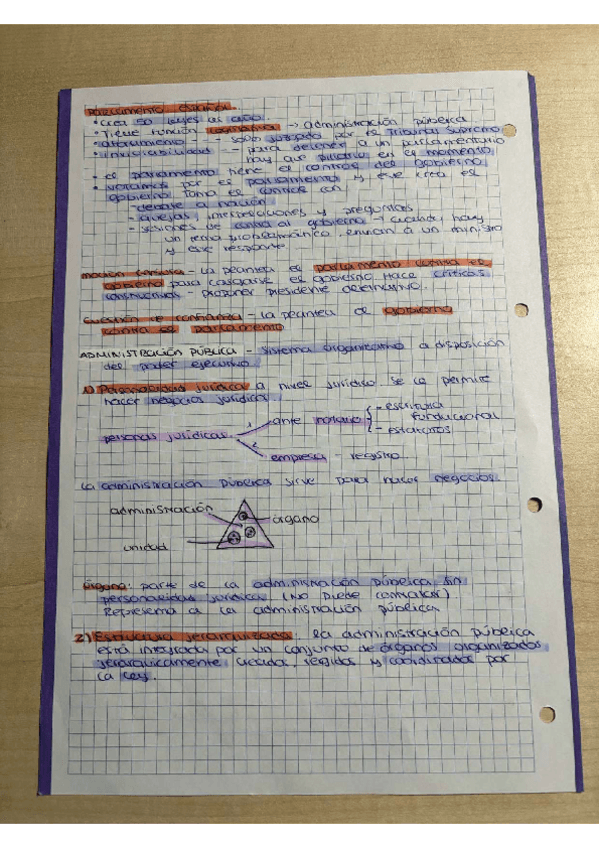 Parlamento español.
• Crea 50 leyes al año.
• Tiene función legislativa → administración pública
• aforamiento - - solo juzgado por el Tribunal Supremo
• inviolabilidad - para detener a un parlamentario
hay que pillarlo en el momento.
• el parlamento tiene el control del gobierno.
• votamos por el parlamento y ese crea el
gobierno como el control con
- debate a nación
- quejas, interpelaciones y preguntas
- sesiones de control al gobierno → cuando hay
un tema problemático envían a un ministro
y ese responde.
Moción censura - La plantea el parlamento contra el
gobierno para cargarse el gobierno. Hace críticas
constructivas - proponer presidente alternativo.
Cuestión de confianza - La plantea el gobierno
contra el parlamento
ADMINISTRACIÓN PÚBLICA - sistema organizativo a disposición
del poder ejecutivo.
1) Personalidad jurídica a nivel jurídico se le permite
hacer negocios jurídicos.
personas jurídicas
1 ante notario { - escritura fundacional
- estatutos
2 empresa - registro.
La administración pública sirve para hacer negocios.
administración
órgano
unidad
Órgano: parte de la administración pública sin
personalidad jurídica (No puede contratar)
Representa a la administración pública
2) Estructura jerarquizada: La administración pública
está integrada por un conjunto de órganos organizados
jerárquicamente creados, regidos y coordinados por
la ley.